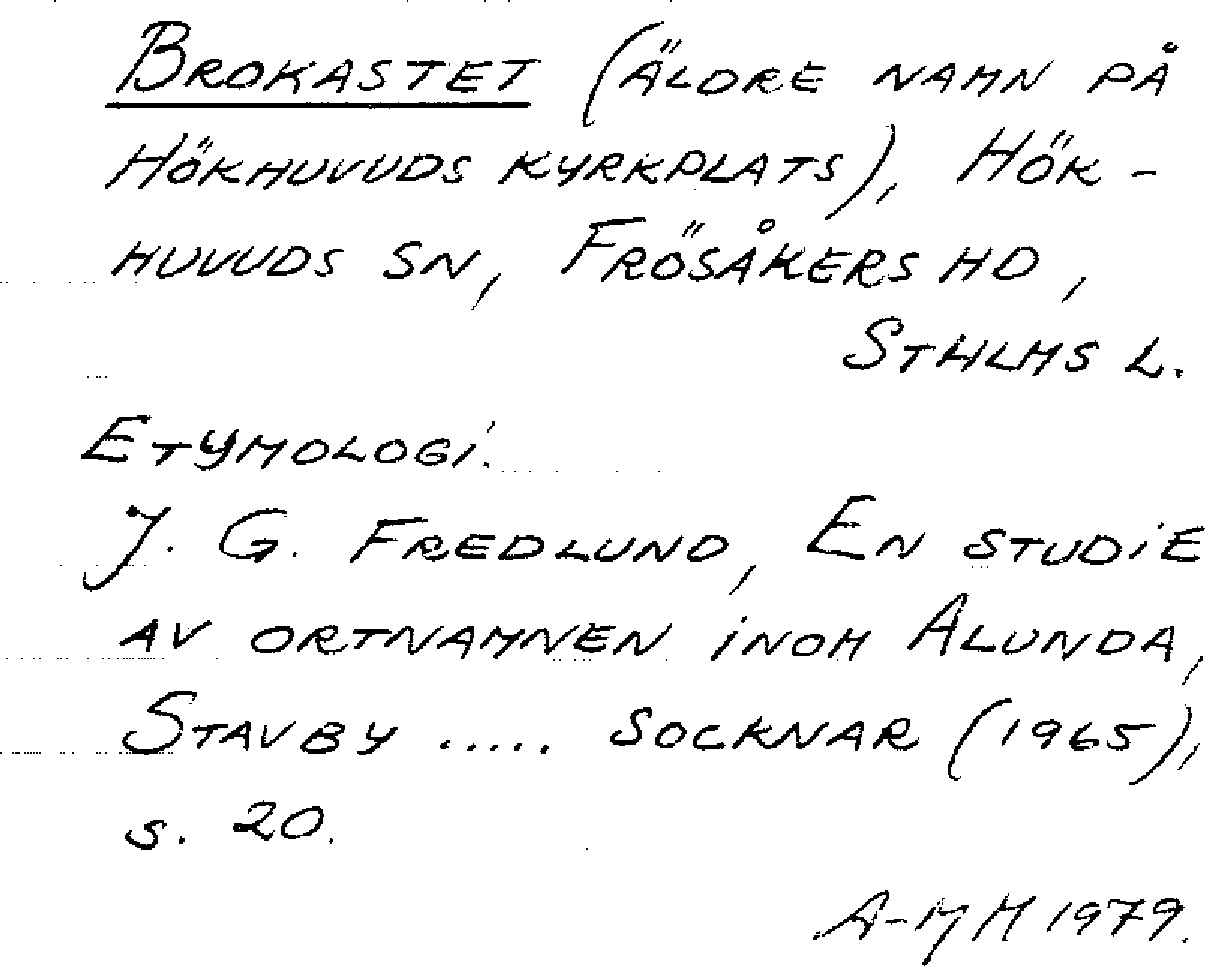 BROKASTET (ÄLDRE NAMN PÅ
HÖKHUVUDS KYRKPLATS), HÖK-
HUVUDS SN, FRÖSÅKERS HD,
STHLMS L.
ETYMOLOGI.
J. G. FREDLUND, EN STUDIE
AV ORTNAMNEN INOM ALUNDA,
STAVBY ..... SOCKNAR (1965),
s. 20.
A-MH 1979.